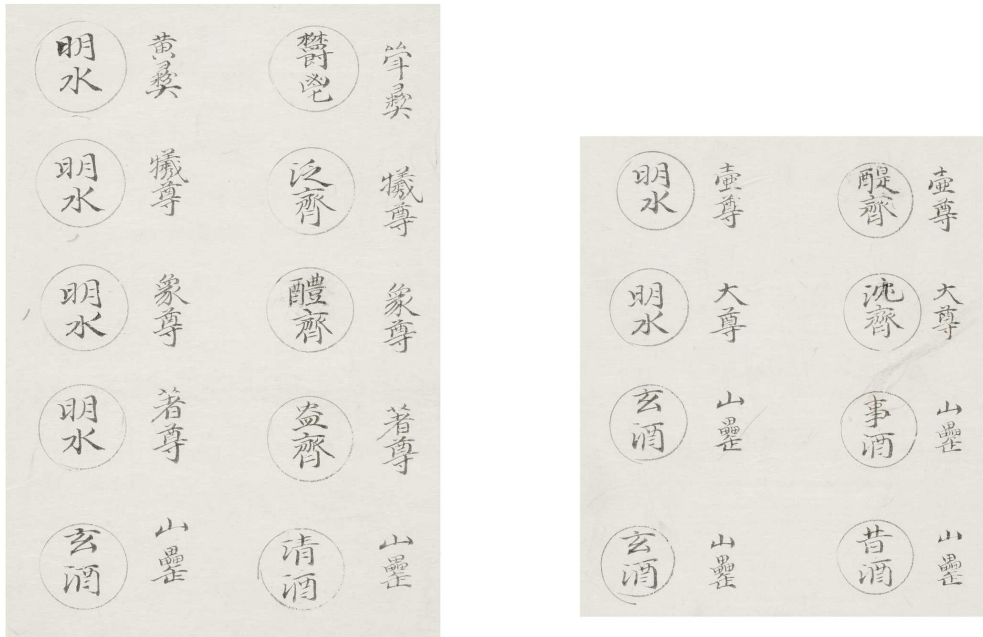 彝
鬱鬯
黃彝
明水
犧尊
泛齊
犧尊
明水
象尊
醴齊
象尊
明水
著尊
盎齊
著尊
明水
山罍
清酒
山罍
玄酒
壺尊
醍齊
壺尊
明水
大尊
沈齊
大尊
明水
山罍
事酒
山罍
玄酒
山罍
昔酒
山罍
玄酒